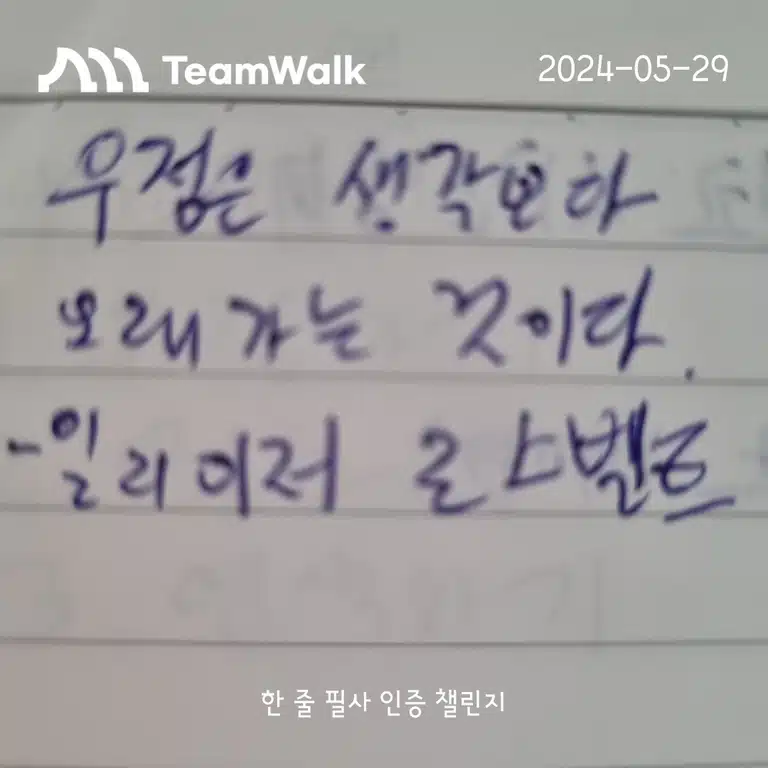 TeamWalk 2024-05-29
우정은 생각보다
오래 가는 것이다.
-일리이저 로스벨트
한 줄 필사 인증 챌린지